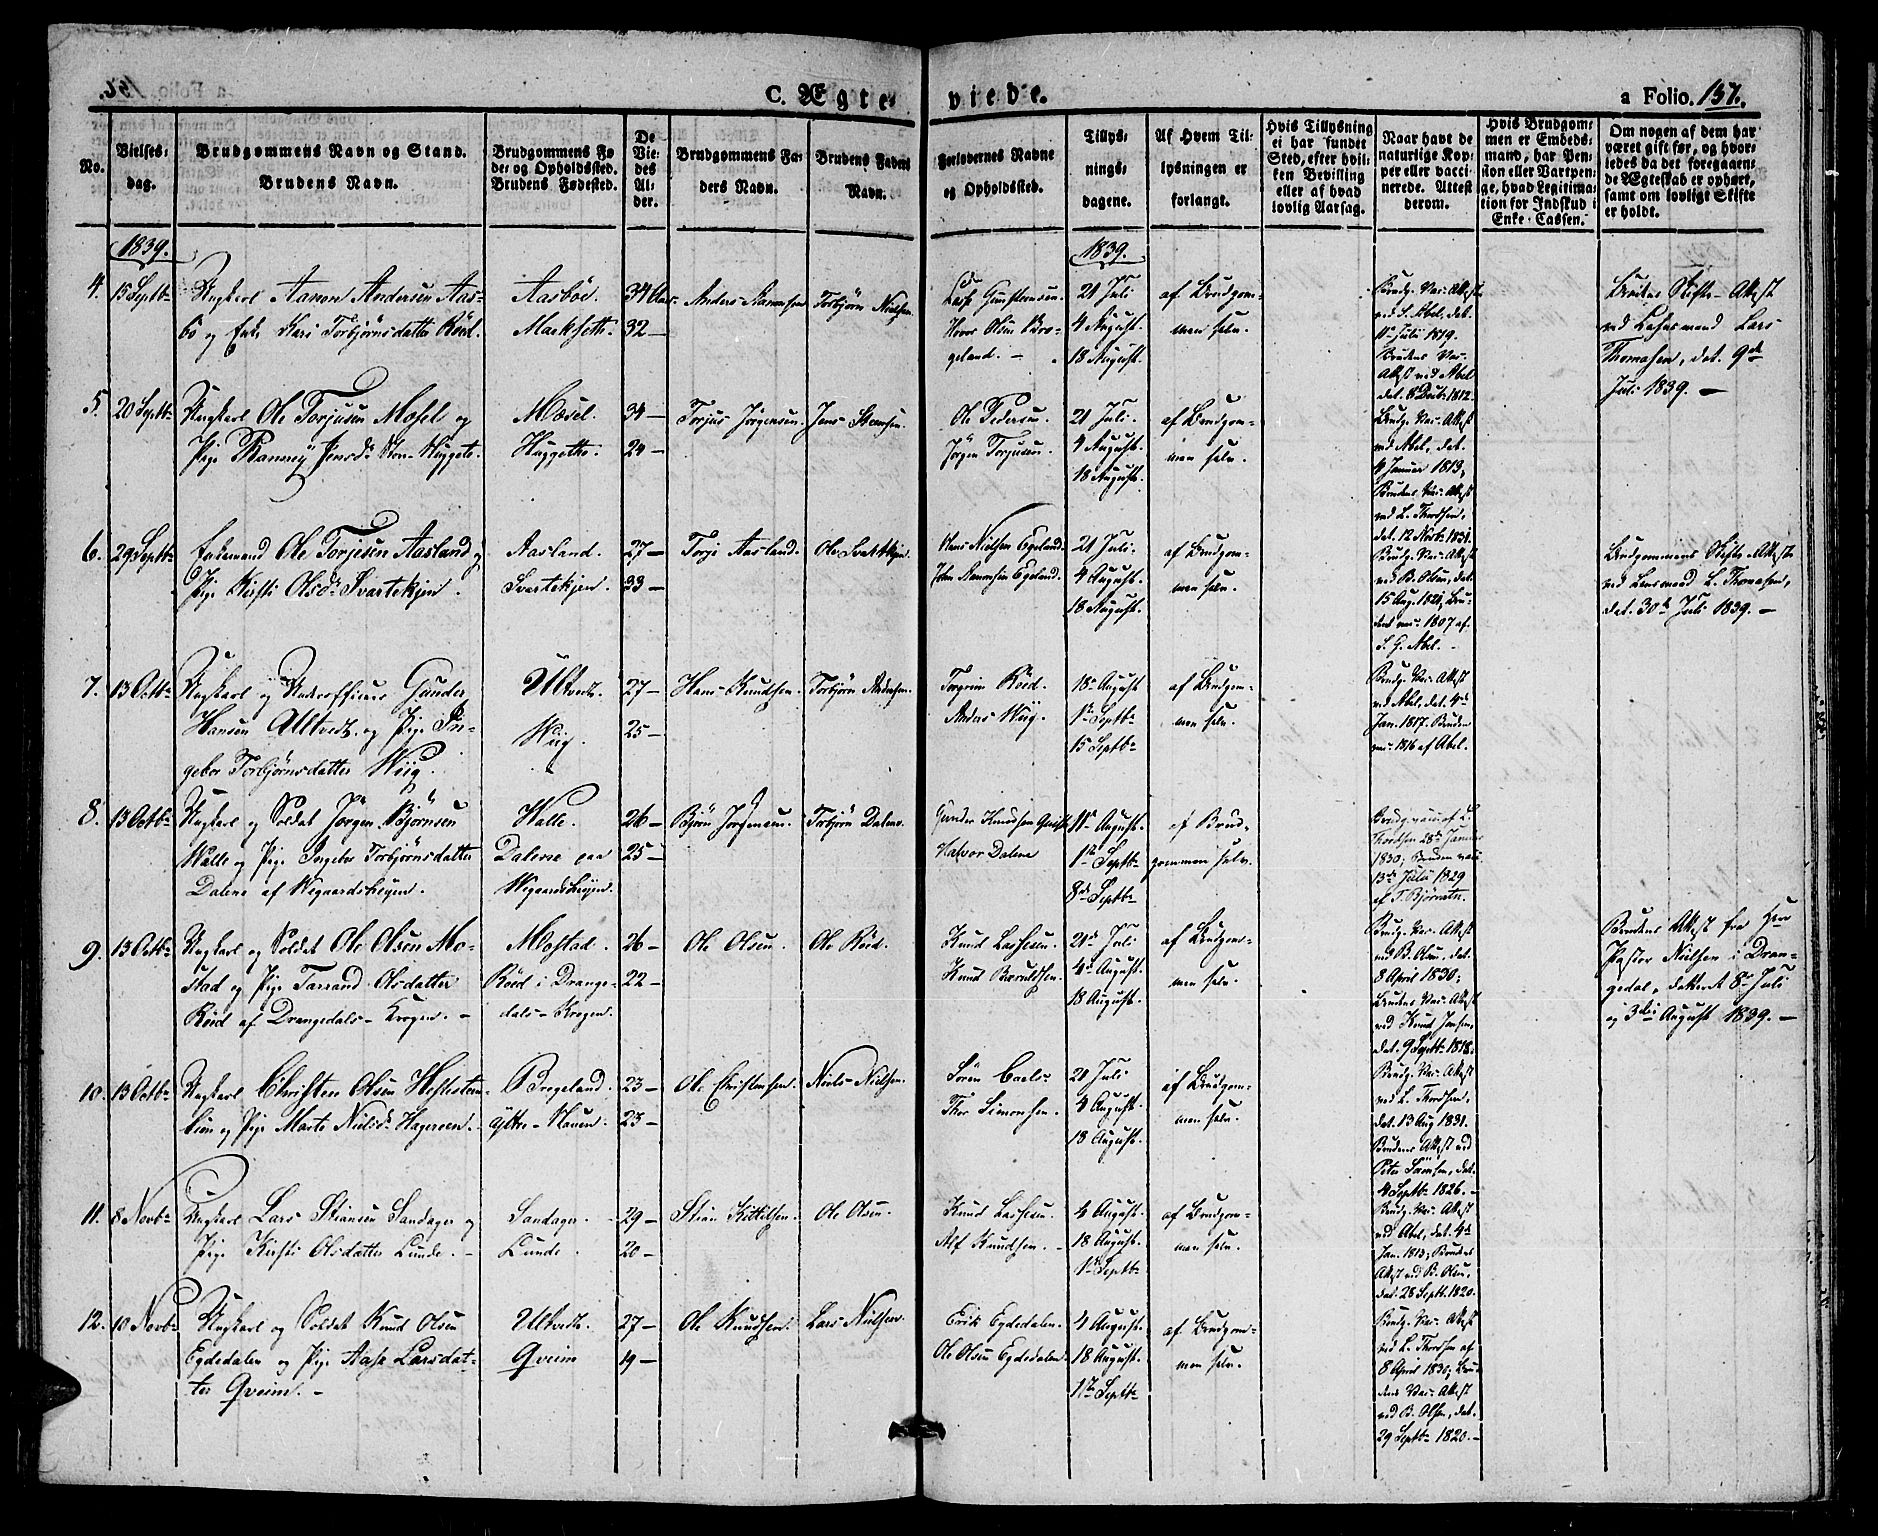 C. Ægteviede.
a Folio. 157.
No.
Vielses-dag.
Brudgommens Navn og Stand.
Brudens Navn.
Brudgommens Fø
de- og Opholdssted.
Brudens Fødested.
De Vie-des Al-der.
Brudgommens Fa-
ders Navn.
Brudens Faders
Navn.
Forlovernes Navne
og Opholdssted.
Tillys-
nings-
dagene.
Af Hvem Til-
lysningen er
forlangt.
Hvis Tillysning
ei har fundet
Sted, efter hvil-
ken Bevilling
eller af hvad
lovlig Aarsag.
Naar havt de
naturlige Kop-
per eller vacci-
nerede. Attest
derom.
Hvis Brudgom-
men er Embeds-
mand, har Pen-
sion eller Vartpen-
ge, hvad Legitima-
tion for Indskud i
Enke-Cassen.
Om nogen af dem har
været gift før, og hvor-
ledes da det foregaaen-
de Ægteskab er ophørt,
samt om lovligt Skifte
er holdt.
1839.
1839.
4. 15 Septbr
Ungkarl Aanon Andersen Aas-
bö og Enke Kari Torbjørnsdatter Röed.
Aasböe.
34 Aar
32 —
Anders Aanonsen
Torbjörn Nielsen.
Gunstensen.
Olsen Bro-
geland. —
21 Juli
4 August.
18 August.
af Brudgom-
men selv.
Brudg. Vac. Attest
ved S. Abel, dat.
Juli 1819.
Brudens Vac.
Attest ved Abel
dat. 8 Decbr 1812.
Brudens Skifte-Attest
ved Lehnsmand Lars
Thomasen, dat. 9de
Juli 1839. —
5. 20 Septbr
Ungkarl Ole Torjusen Mosel og
Pige Jensdr
Mæsel.
34 —
24 —
Torjus Jörgensen.
Jens
Ole Pedersen.
Jörgen Torjusen.
21 Juli.
4 August.
18 August.
af Brudgom-
men selv.
Brudg. Vac. Attest
ved Abel, dat.
4 Januar 1813;
Brudens Vac. Attest
ved L. Thordsen,
dat. 12 Novbr 1831.
6. 29 Septbr
Enkemand Ole Torjesen Aasland og
Pige Kirsti Olsdr Svartekjen.
Aasland.
Svartekjen.
27 —
33 —
Torje Aasland.
Ole Svartekjen.
Hans Nielsen Egeland.
John Aanonsen Egeland.
21 Juli.
4 August.
18 August.
af Brudgom-
men selv.
Brudg. Vac. Attest
ved B. Olsen, dat.
15 Aug. 1821; Bru-
dens vac. 1807 af
S. G. Abel. —
Brudgommens Skifte-Attest
ved Lensmand L. Thomasen,
dat. 30te Juli 1839. —
7. 13 Octbr
Ungkarl og Underofficeer Gunder
Hansen Ulltvedt. og Pige In-
gebor Torbjørnsdatter Wiig.
Ulltvedt.
Wiig.
27 —
25 —
Hans Knudsen.
Torbjörn Andersen.
Torgrim Röed.
Anders Wiig.
18de August
1ste Septbr
15 Septbr
af Brudgom-
men selv.
Brudg. Vac. Attest
ved Abel, dat. 4de
Jan. 1817. Bruden
vac. 1816 af Abel.
8. 13 Octbr
Ungkarl og Soldat Jörgen Björnsen
Walle og Pige Ingebor Torbjørnsdatter
Dalene af Wegaardsheien.
Walle.
Dalene paa
Wegaardsheien.
26 —
25 —
Björn Jörgensen.
Torbjörn Dalene.
Gunder Knudsen
Halvor Dalene
11te August.
1ste Septbr
8de Septbr
af Brud-
gommen selv.
Brudg. vacc. af L.
Thordsen 28de Januar
1830; Bruden vacc.
13de Juli 1829
af T. Björnsen.
9. 13 Octbr
Ungkarl og Soldat Ole Olsen Mo-
stad og Pige Tarrand Olsdatter
Röed af Drangedals-Krogen. —
Mostad.
Röed i Drange-
dals-Krogen.
26 —
22 —
Ole Olsen.
Ole Röed.
Knud Lassesen.
Knud Baroldsen.
21de Juli
4de August.
18 August.
af Brudgom-
men selv.
Brudg. Vac. Attest
ved B. Olsen, dat.
8 April 1830;
Brudens Vac. Attest
ved Knud Jensen,
dat. 9 Septbr 1818.
Brudens Attest fra Herr
Pastor Nielsen i Dran-
gedal, dateret 8de Juli
og 3die August 1839. —
10. 13 Octbr
Ungkarl Christen Olsen
og Pige Marte Nielsdr
Bregeland.
23 —
23 —
Ole Christensen.
Niels Nielsen.
Sören Carls.
Thor Simonsen.
21 Juli
4 August.
18 August.
af Brudgom-
men selv.
Brudg. Vac. Attest
ved L. Thordsen,
dat. 13 Aug 1831.
Brudens Attest ved
Peter Sörnsen, dat.
4 Septbr 1826. —
11. 8 Novbr
Ungkarl Lars Stiansen Sandager og
Pige Kirsti Olsdatter Lunde. —
Sandager. —
Lunde. —
29 —
20 —
Stian Kittilsen.
Ole Olsen.
Knud Lassesen.
Alf Knudsen. —
4 August.
18 August.
1ste Septbr
af Brudgom-
men selv.
Brudg. Vac. Attest
ved Abel, dat. 4de
Jan. 1813; Brudens
Attest ved B. Olsen,
dat. 28 Septbr 1820.
12. 10 Novbr
Ungkarl og Soldat Knud Olsen
Egdedalen og Pige Aase Larsdat-
ter Qveim. —
Ulltvedt.
Qveim
27 —
19 —
Ole Knudsen.
Lars Nielsen.
Erik Egdedalen.
Ole Olsen Egdedalen.
4 August.
18 August.
1ste Septbr
af Brudgom-
men selv.
Brudg. Vac. Attest
ved L. Thordsen af
8 April 1830; Bru-
dens Vac. Attest
ved B. Olsen, dat.
29 Septbr 1820. —